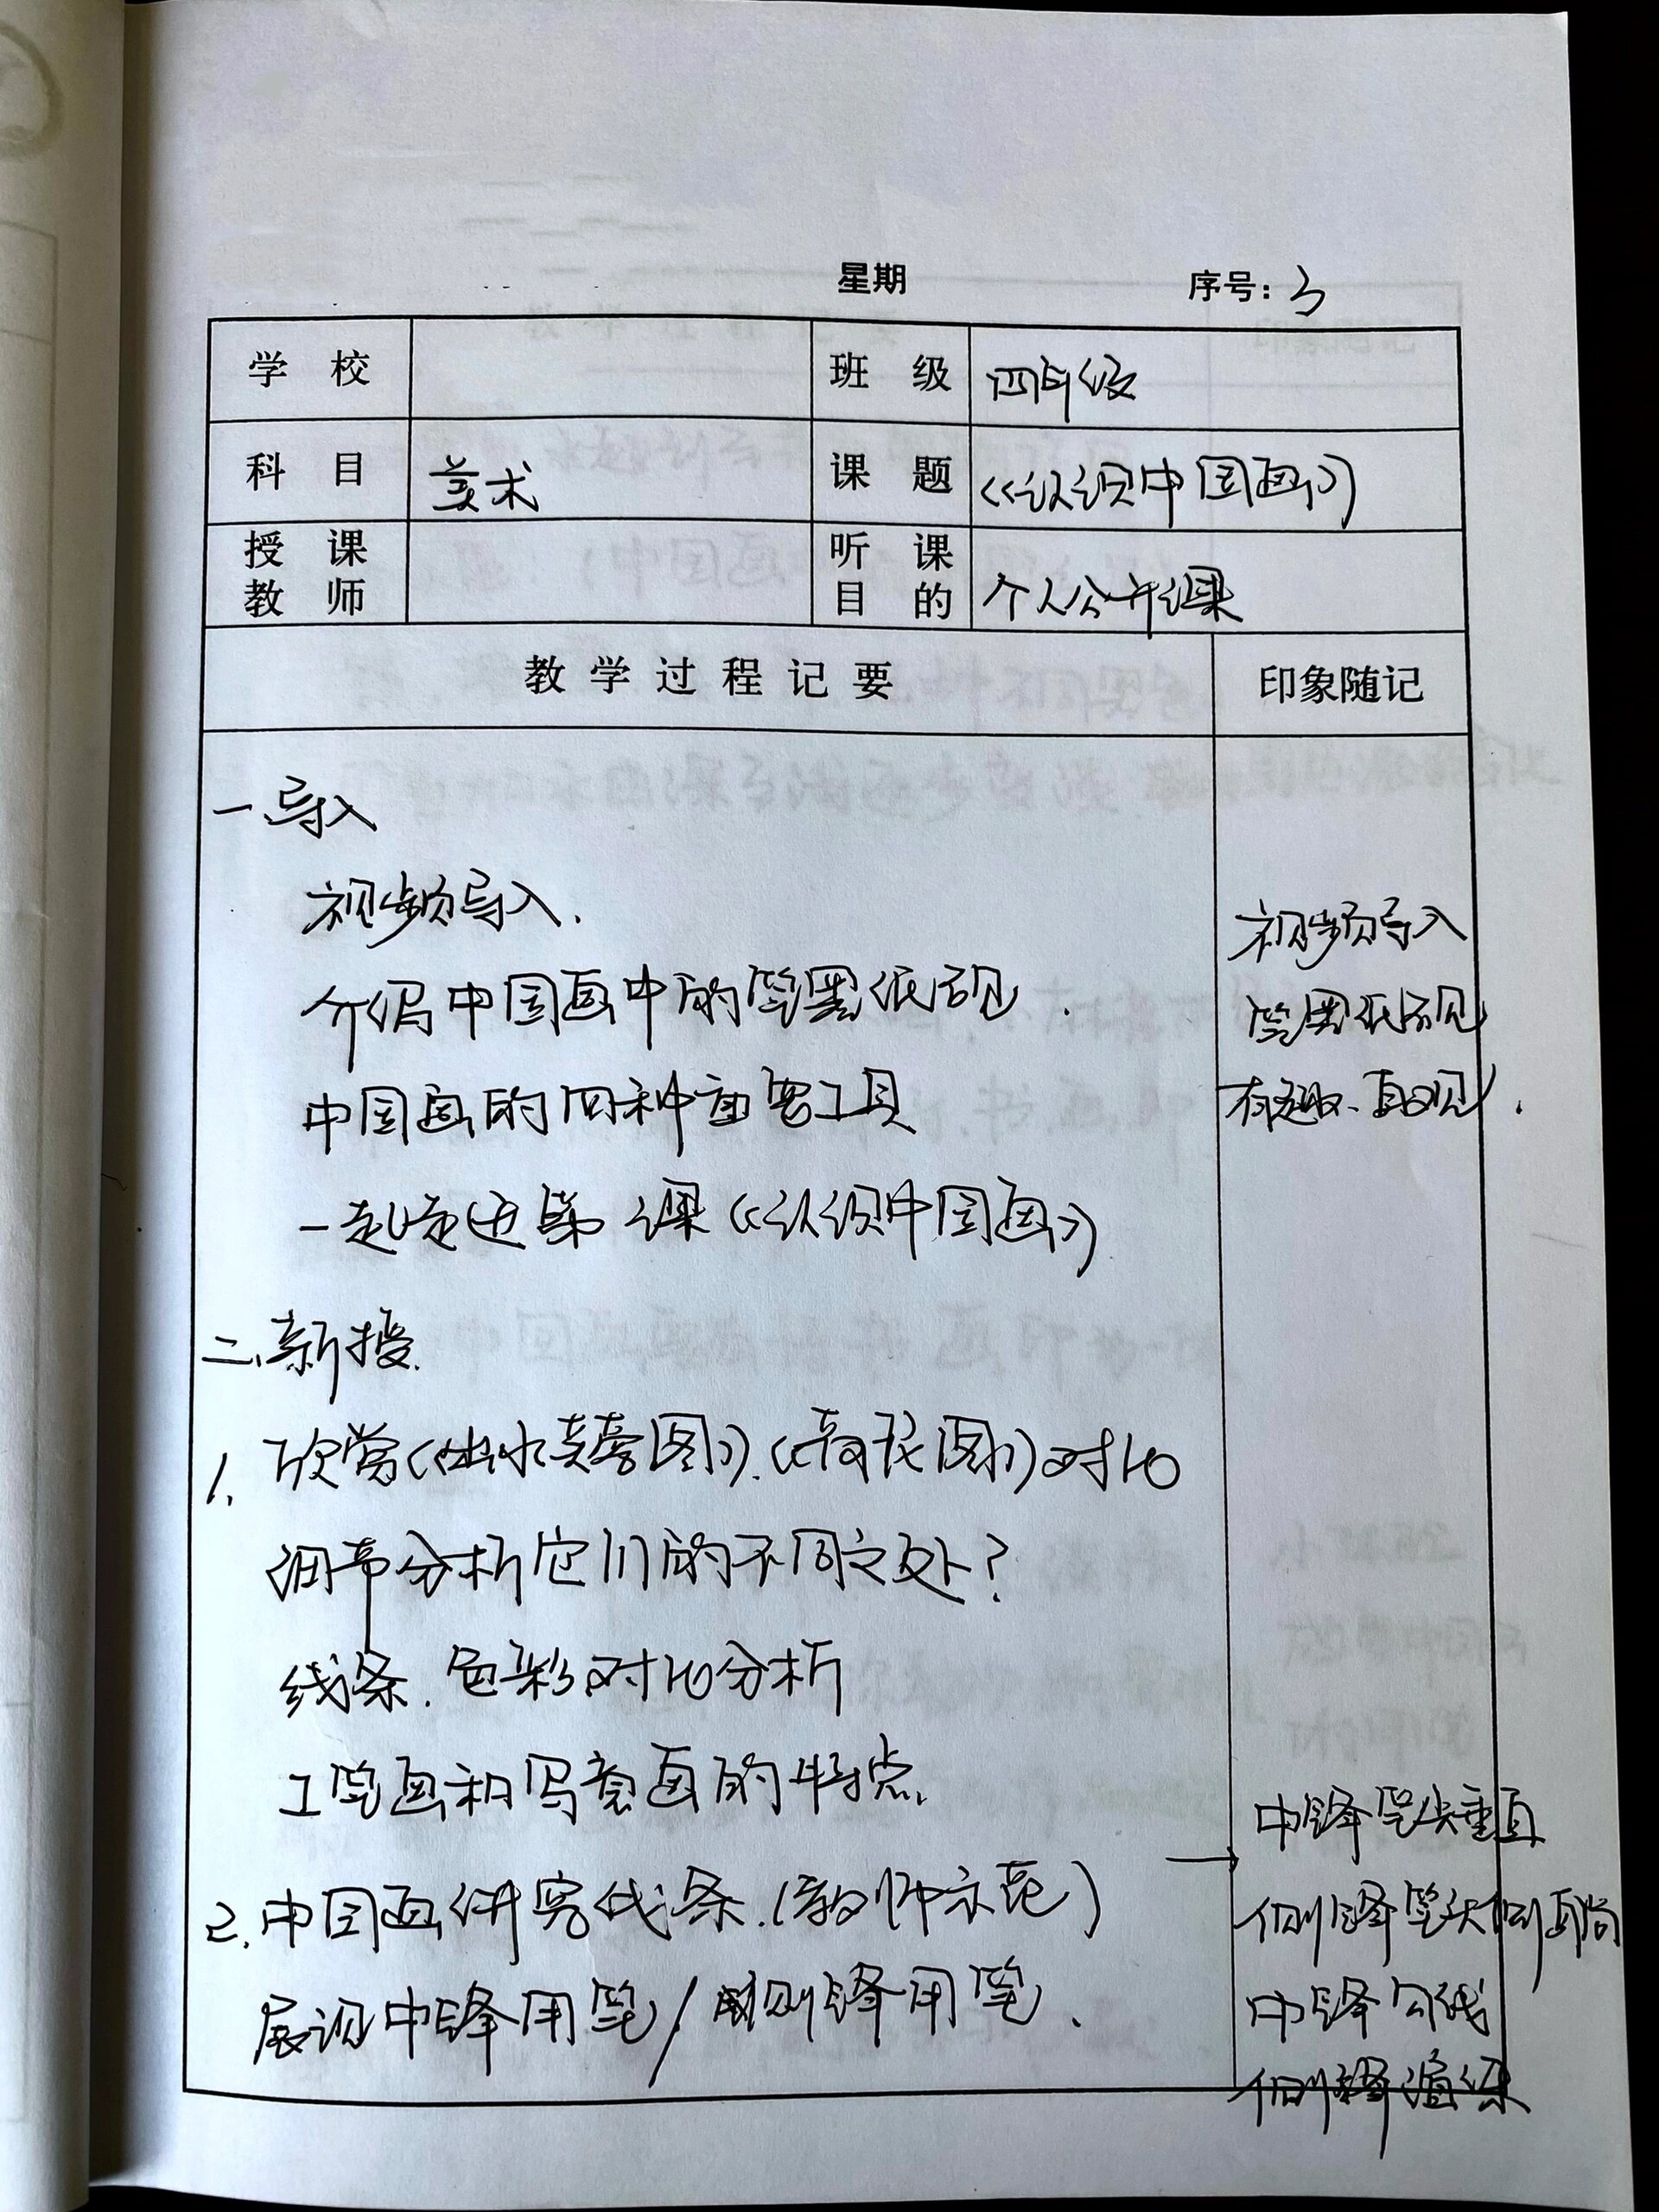 星期 序号：3
学校 班级 四年级
科目 美术 课题 《认识中国画》
授课教师 听课目的 个人公开课
教学过程记要 印象随记
一.导入
视频导入.
视频导入
介绍中国画中的笔墨纸砚.
笔墨纸砚
中国画的四种重要工具
有趣、直观.
一起走进第 课《认识中国画》
二、新授.
1. 欣赏《出水芙蓉图》.《荷花图》对比
细节分析它们的不同之处？
线条.色彩对比分析
工笔画和写意画的特点.
中锋笔尖垂直
2.中国画讲究线条.（教师示范）
侧锋笔头侧面
展评中锋用笔/侧锋用笔.
中锋勾线
侧锋渲染